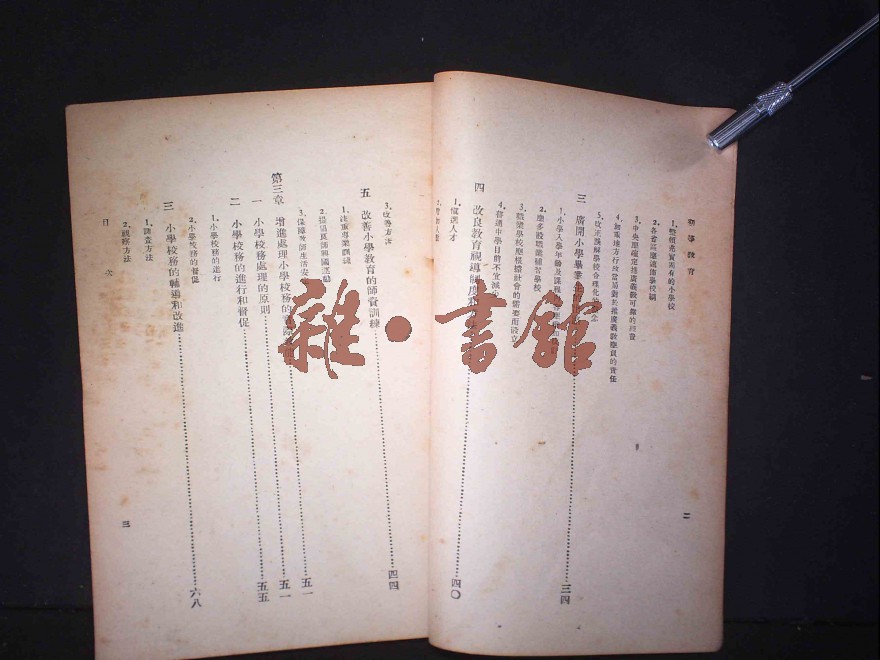 教育
二
1.整頓充實現有的小學校
2.各省區應遍設學校網
3.中央應確定推廣義教可靠的經費
4.卸責地方行政當局對於推廣義教應負的責任
5.改正誤解學校合理化的
三 廣開小學畢業生 三四
1.小學入學年齡及課程
2.應多設職業補習學校
3.職業學校應根據社會的需要而設立
4.普通中學目前不宜減少
四 改良教育視導制度 四〇
1.慎選人才
3.改善方法
五 改善小學教育的師資訓練 四四
1.注重專業訓練
2.提倡良師興國運動
3.保障教師生活安 五一
第三章 增進處理小學校務的 五一
一 小學校務處理的原則 五五
二 小學校務的進行和督促
1.小學校務的進行
2.小學校務的督促
三 小學校務的輔導和改進 六八
1.調查方法
2.視察方法
目 次
三
雜·書館